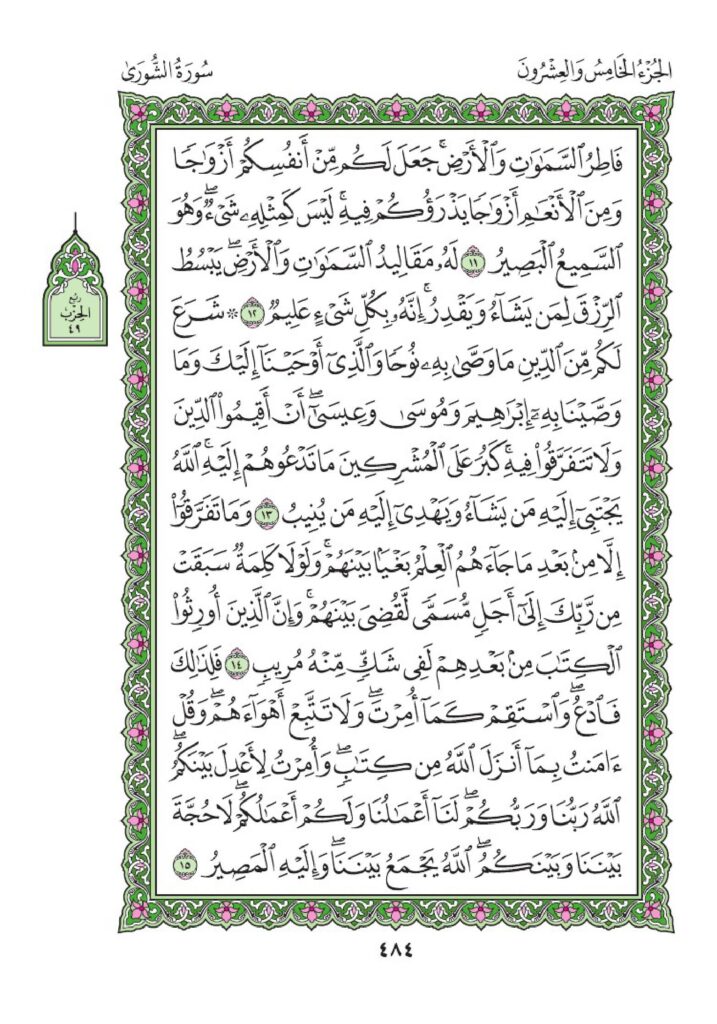 الجُزْءُ الخَامِسُ وَالعِشْرُونَ
سُورَةُ الشُّورَىٰ
فَاطِرُ ٱلسَّمَٰوَٰتِ وَٱلْأَرْضِۚ جَعَلَ لَكُم مِّنْ أَنفُسِكُمْ أَزْوَٰجًا
وَمِنَ ٱلْأَنْعَٰمِ أَزْوَٰجًا يَذْرَؤُكُمْ فِيهِۚ لَيْسَ كَمِثْلِهِۦ شَىْءٌۖ وَهُوَ
ٱلسَّمِيعُ ٱلْبَصِيرُ ١١ لَهُۥ مَقَالِيدُ ٱلسَّمَٰوَٰتِ وَٱلْأَرْضِۖ يَبْسُطُ
ٱلرِّزْقَ لِمَن يَشَآءُ وَيَقْدِرُۚ إِنَّهُۥ بِكُلِّ شَىْءٍ عَلِيمٌ ١٢ ۞ شَرَعَ
رُبْع
الحِزْبِ
٤٩
لَكُم مِّنَ ٱلدِّينِ مَا وَصَّىٰ بِهِۦ نُوحًا وَٱلَّذِىٓ أَوْحَيْنَآ إِلَيْكَ وَمَا
وَصَّيْنَا بِهِۦٓ إِبْرَٰهِيمَ وَمُوسَىٰ وَعِيسَىٰٓۖ أَنْ أَقِيمُوا۟ ٱلدِّينَ
وَلَا تَتَفَرَّقُوا۟ فِيهِۚ كَبُرَ عَلَى ٱلْمُشْرِكِينَ مَا تَدْعُوهُمْ إِلَيْهِۚ ٱللَّهُ
يَجْتَبِىٓ إِلَيْهِ مَن يَشَآءُ وَيَهْدِىٓ إِلَيْهِ مَن يُنِيبُ ١٣ وَمَا تَفَرَّقُوٓا۟
إِلَّا مِنۢ بَعْدِ مَا جَآءَهُمُ ٱلْعِلْمُ بَغْيًۢا بَيْنَهُمْۚ وَلَوْلَا كَلِمَةٌ سَبَقَتْ
مِن رَّبِّكَ إِلَىٰٓ أَجَلٍ مُّسَمًّى لَّقُضِىَ بَيْنَهُمْۚ وَإِنَّ ٱلَّذِينَ أُورِثُوا۟
ٱلْكِتَٰبَ مِنۢ بَعْدِهِمْ لَفِى شَكٍّ مِّنْهُ مُرِيبٍ ١٤ فَلِذَٰلِكَ
فَٱدْعُۖ وَٱسْتَقِمْ كَمَآ أُمِرْتَۖ وَلَا تَتَّبِعْ أَهْوَآءَهُمْۖ وَقُلْ
ءَامَنتُ بِمَآ أَنزَلَ ٱللَّهُ مِن كِتَٰبٍۖ وَأُمِرْتُ لِأَعْدِلَ بَيْنَكُمُۖ
ٱللَّهُ رَبُّنَا وَرَبُّكُمْۖ لَنَآ أَعْمَٰلُنَا وَلَكُمْ أَعْمَٰلُكُمْۖ لَا حُجَّةَ
بَيْنَنَا وَبَيْنَكُمُۖ ٱللَّهُ يَجْمَعُ بَيْنَنَاۖ وَإِلَيْهِ ٱلْمَصِيرُ ١٥
٤٨٤